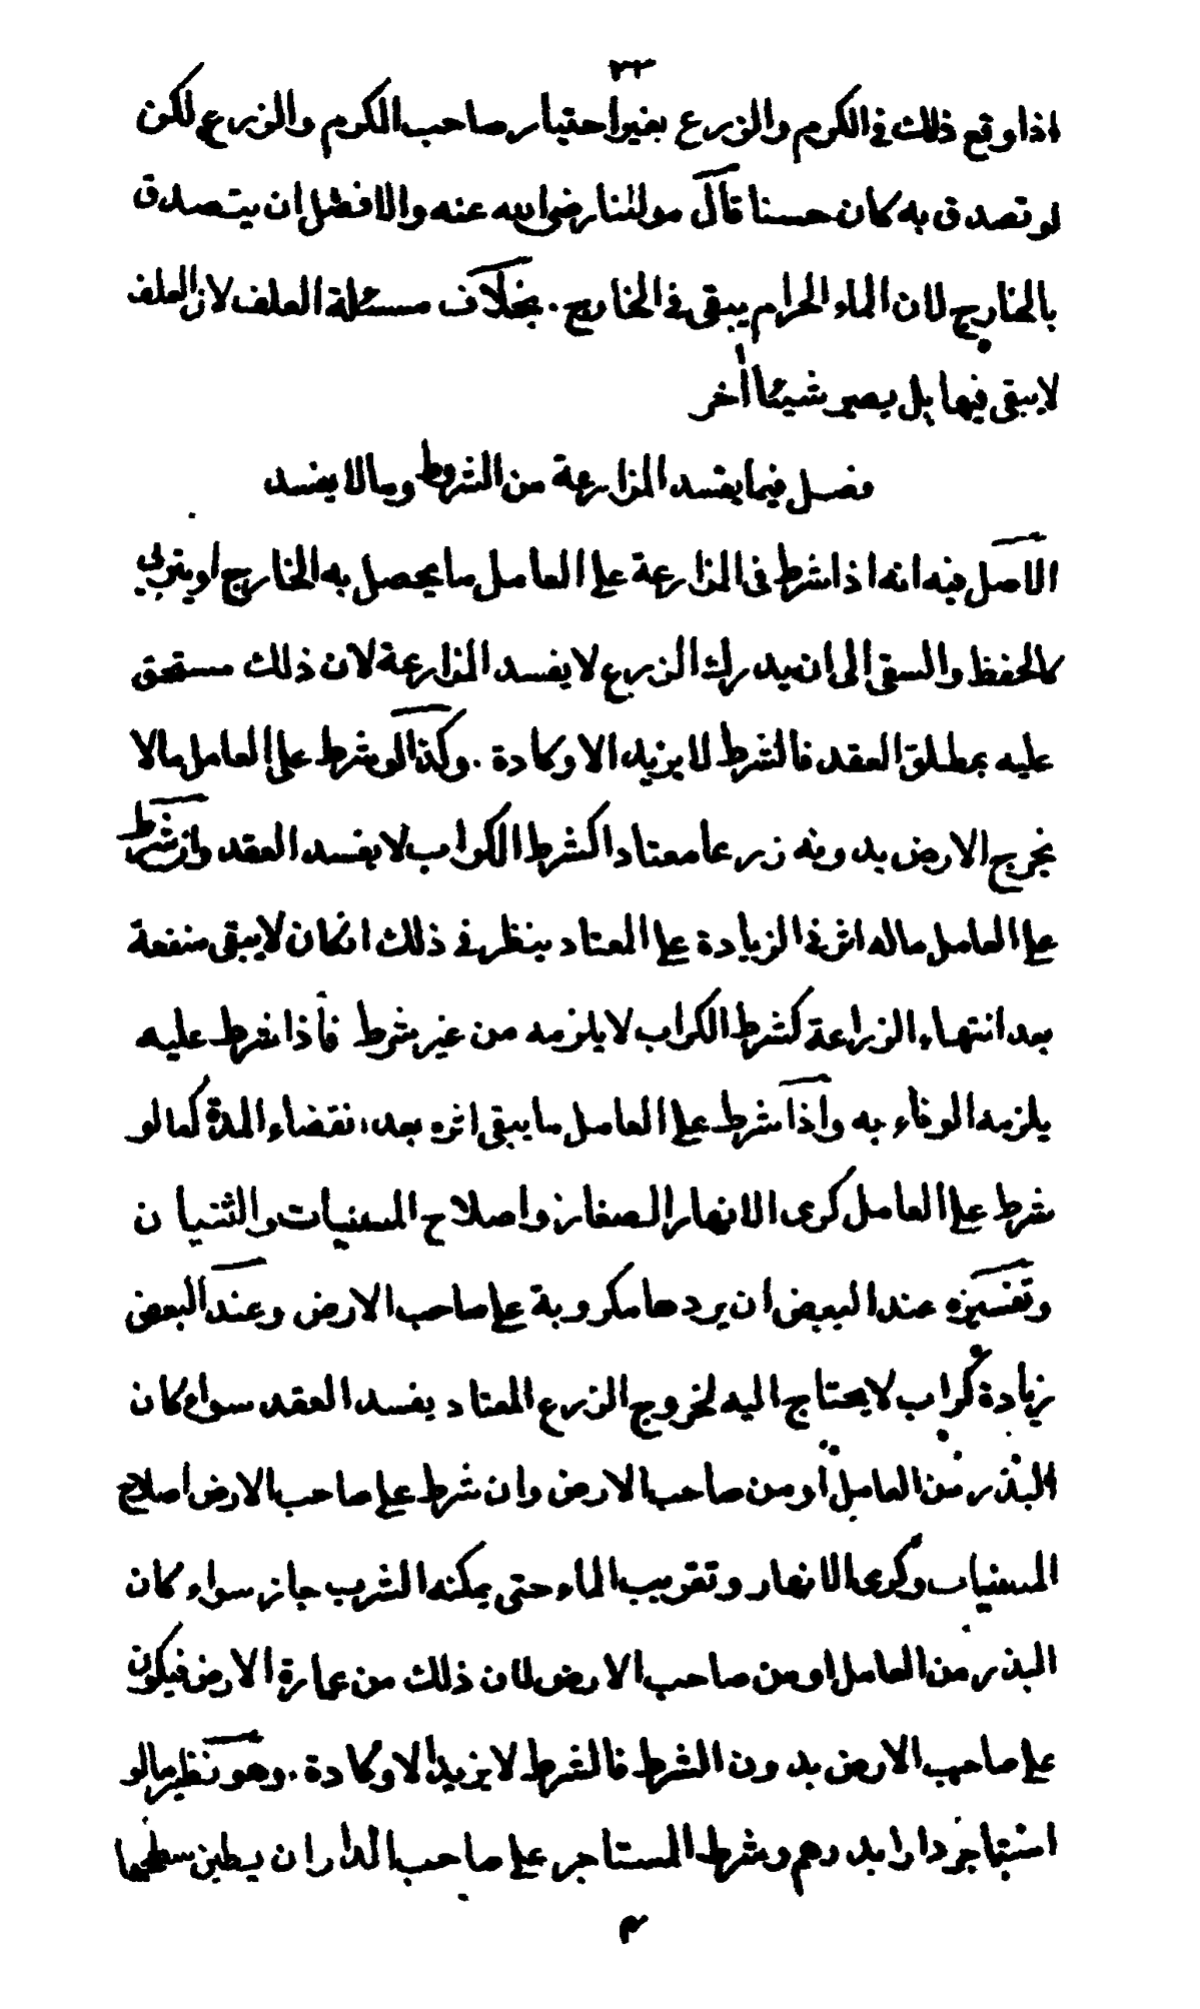 ٣٢
اذا وقع ذلك في الكرم والزرع بغير اختيار صاحب الكرم والزرع لكن
لو تصدق به كان حسنا قال مولٰنا رضى الله عنه والافضل ان يتصدق
بالخارج لان الماء الحرام يبقى في الخارج . بخلاف مسئلة العلف لان العلف
لا يبقى فيها بل يصير شيئا اٰخر
فصل فيما يفسد المزارعة من الشروط وما لا يفسد
الاصل فيه انه اذا شرط فى المزارعة على العامل ما يحصل به الخارج او يتربى
كالحفظ والسقى الى ان يدرك الزرع لا يفسد المزارعة لان ذلك مستحق
عليه بمطلق العقد فالشرط لا يزيد الا وكادة . وكذا لو شرط على العامل ما لا
يخرج الارض بدونه زرعا معتادا كشرط الكراب لا يفسد العقد وان شرط
على العامل ماله اثر فى الزيادة على المعتاد ينظر في ذلك ان كان لا يبقى منفعة
بعد انتهاء الزراعة كشرط الكراب لا يلزمه من غير شرط فأذا شرط عليه
يلزمه الوفاء به واذا شرط على العامل ما يبقى اثره بعد انقضاء المدة كما لو
شرط على العامل كرى الانهار الصغار واصلاح المسنيات والثنيان
وتفسيره عند البعض ان يردها مكروبة على صاحب الارض وعند البعض
زيادة كراب لا يحتاج اليه لخروج الزرع المعتاد يفسد العقد سواء كان
البذر من العامل او من صاحب الارض وان شرط على صاحب الارض اصلاح
المسنيات وكرى الانهار وتقريب الماء حتى يمكنه الشرب جاز سواء كان
البذر من العامل او من صاحب الارض لان ذلك من عمارة الارض فيكون
على صاحب الارض بدون الشرط فالشرط لا يزيد الا وكادة . وهو نظير ما لو
استاجر دارا بدرهم وشرط المستاجر على صاحب الدار ان يطين سطحها
م